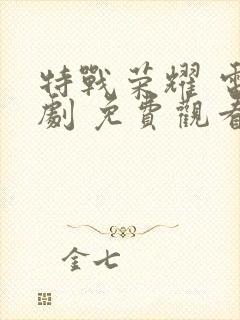 特戰荣耀 電
劇 免費觀看
金七